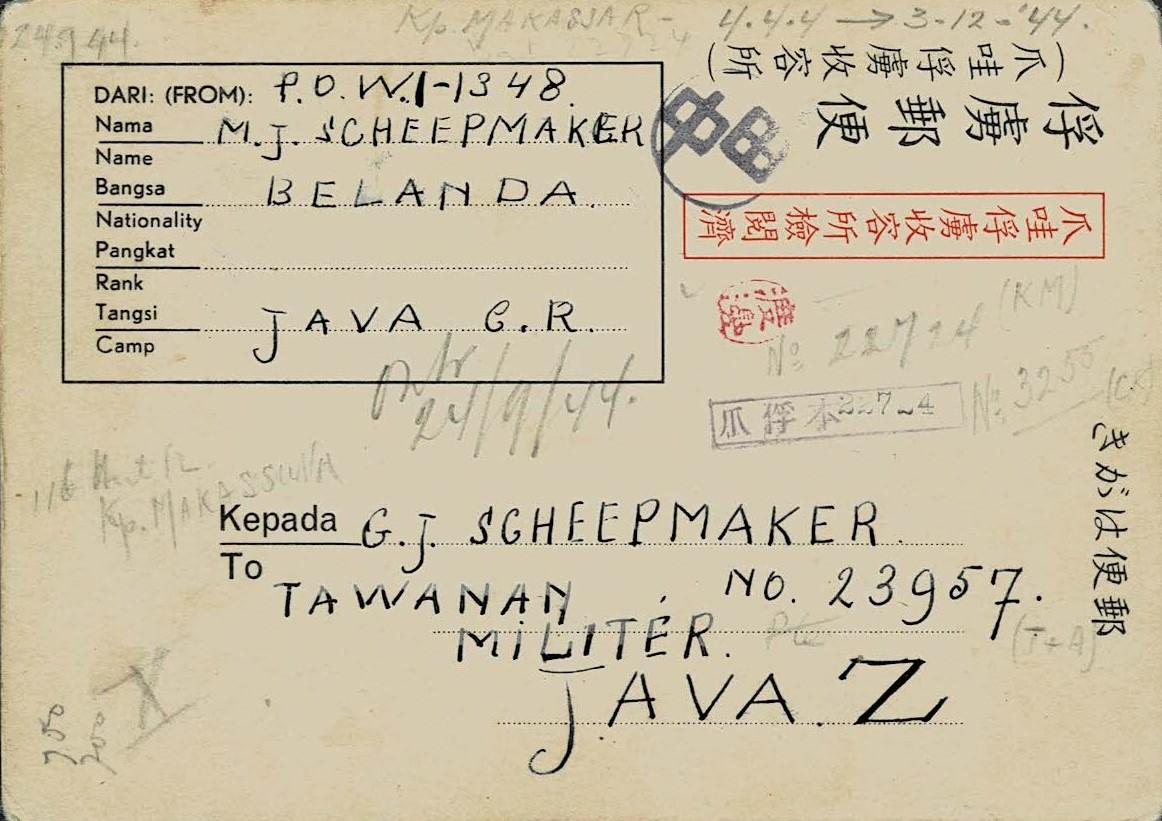 24.9.44.
Kp. MAKASSAR - 4.4.4 → 3-12-'44.
DARI: (FROM): P.O.W. 1-1348.
Nama M.J. SCHEEPMAKER
Name
Bangsa BELANDA.
Nationality
Pangkat
Rank
Tangsi JAVA G.R.
Camp
俘虜郵便
(爪哇俘虜收容所)
爪哇俘虜收容所檢閲濟
No 22724 (KM)
No 3255
爪俘本 227-4
24/9/44.
郵便はがき
Kepada G.J. SCHEEPMAKER.
To
TAWANAN NO. 23957.
MILITER. (T+A)
JAVA. Z
750
200